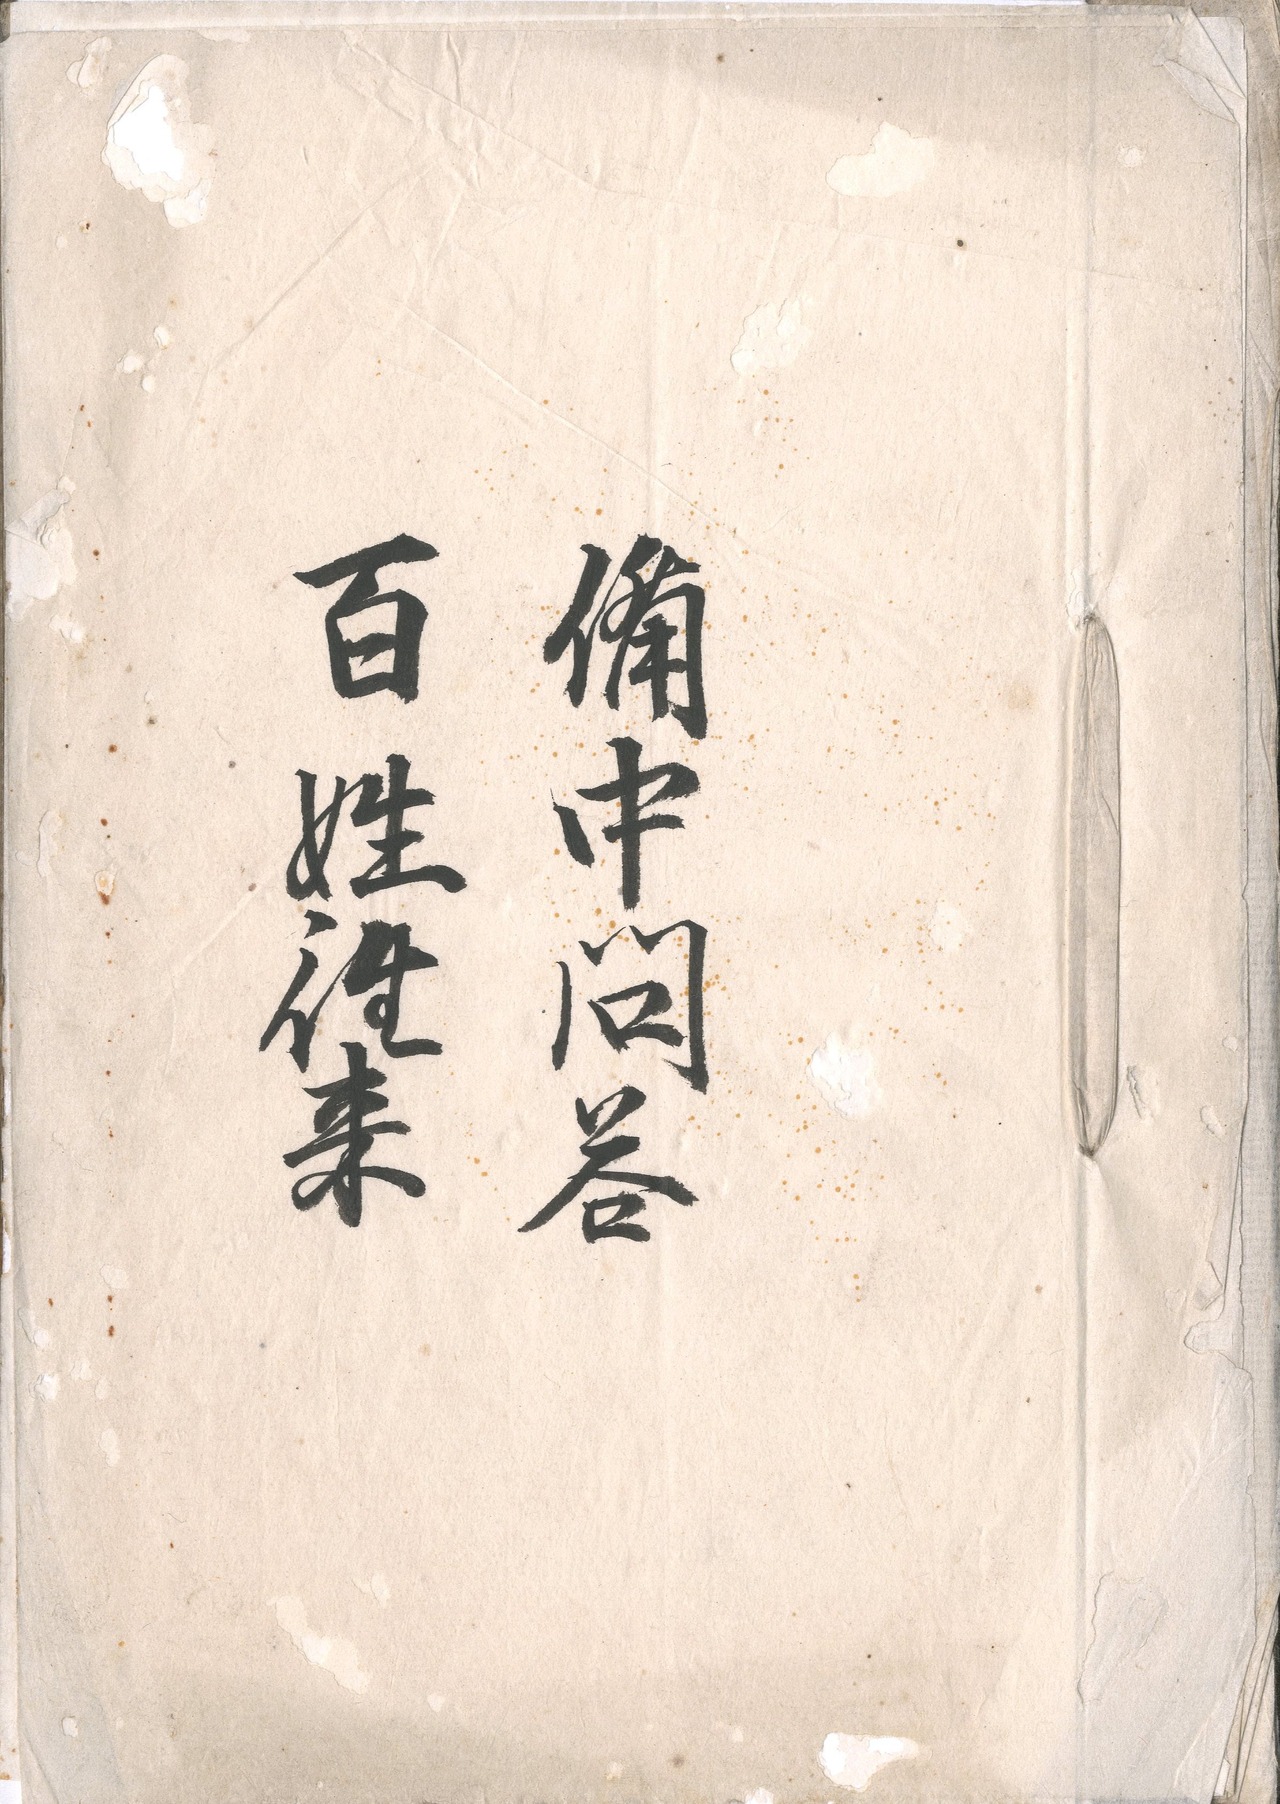 備中問答
百姓往来